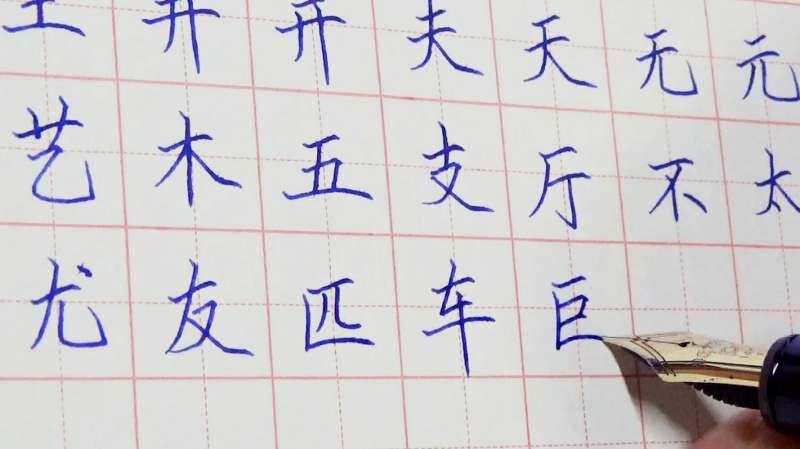 王井开夫天无元
艺木五支厅不太
尤友匹车巨